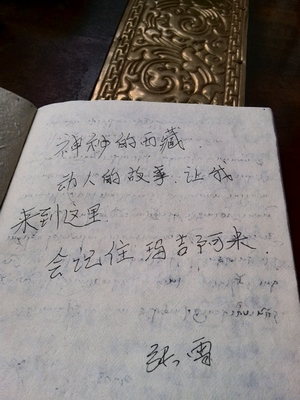 神秘的西藏.
动人的故事.让我
来到这里
会记住玛吉阿米.
张雪